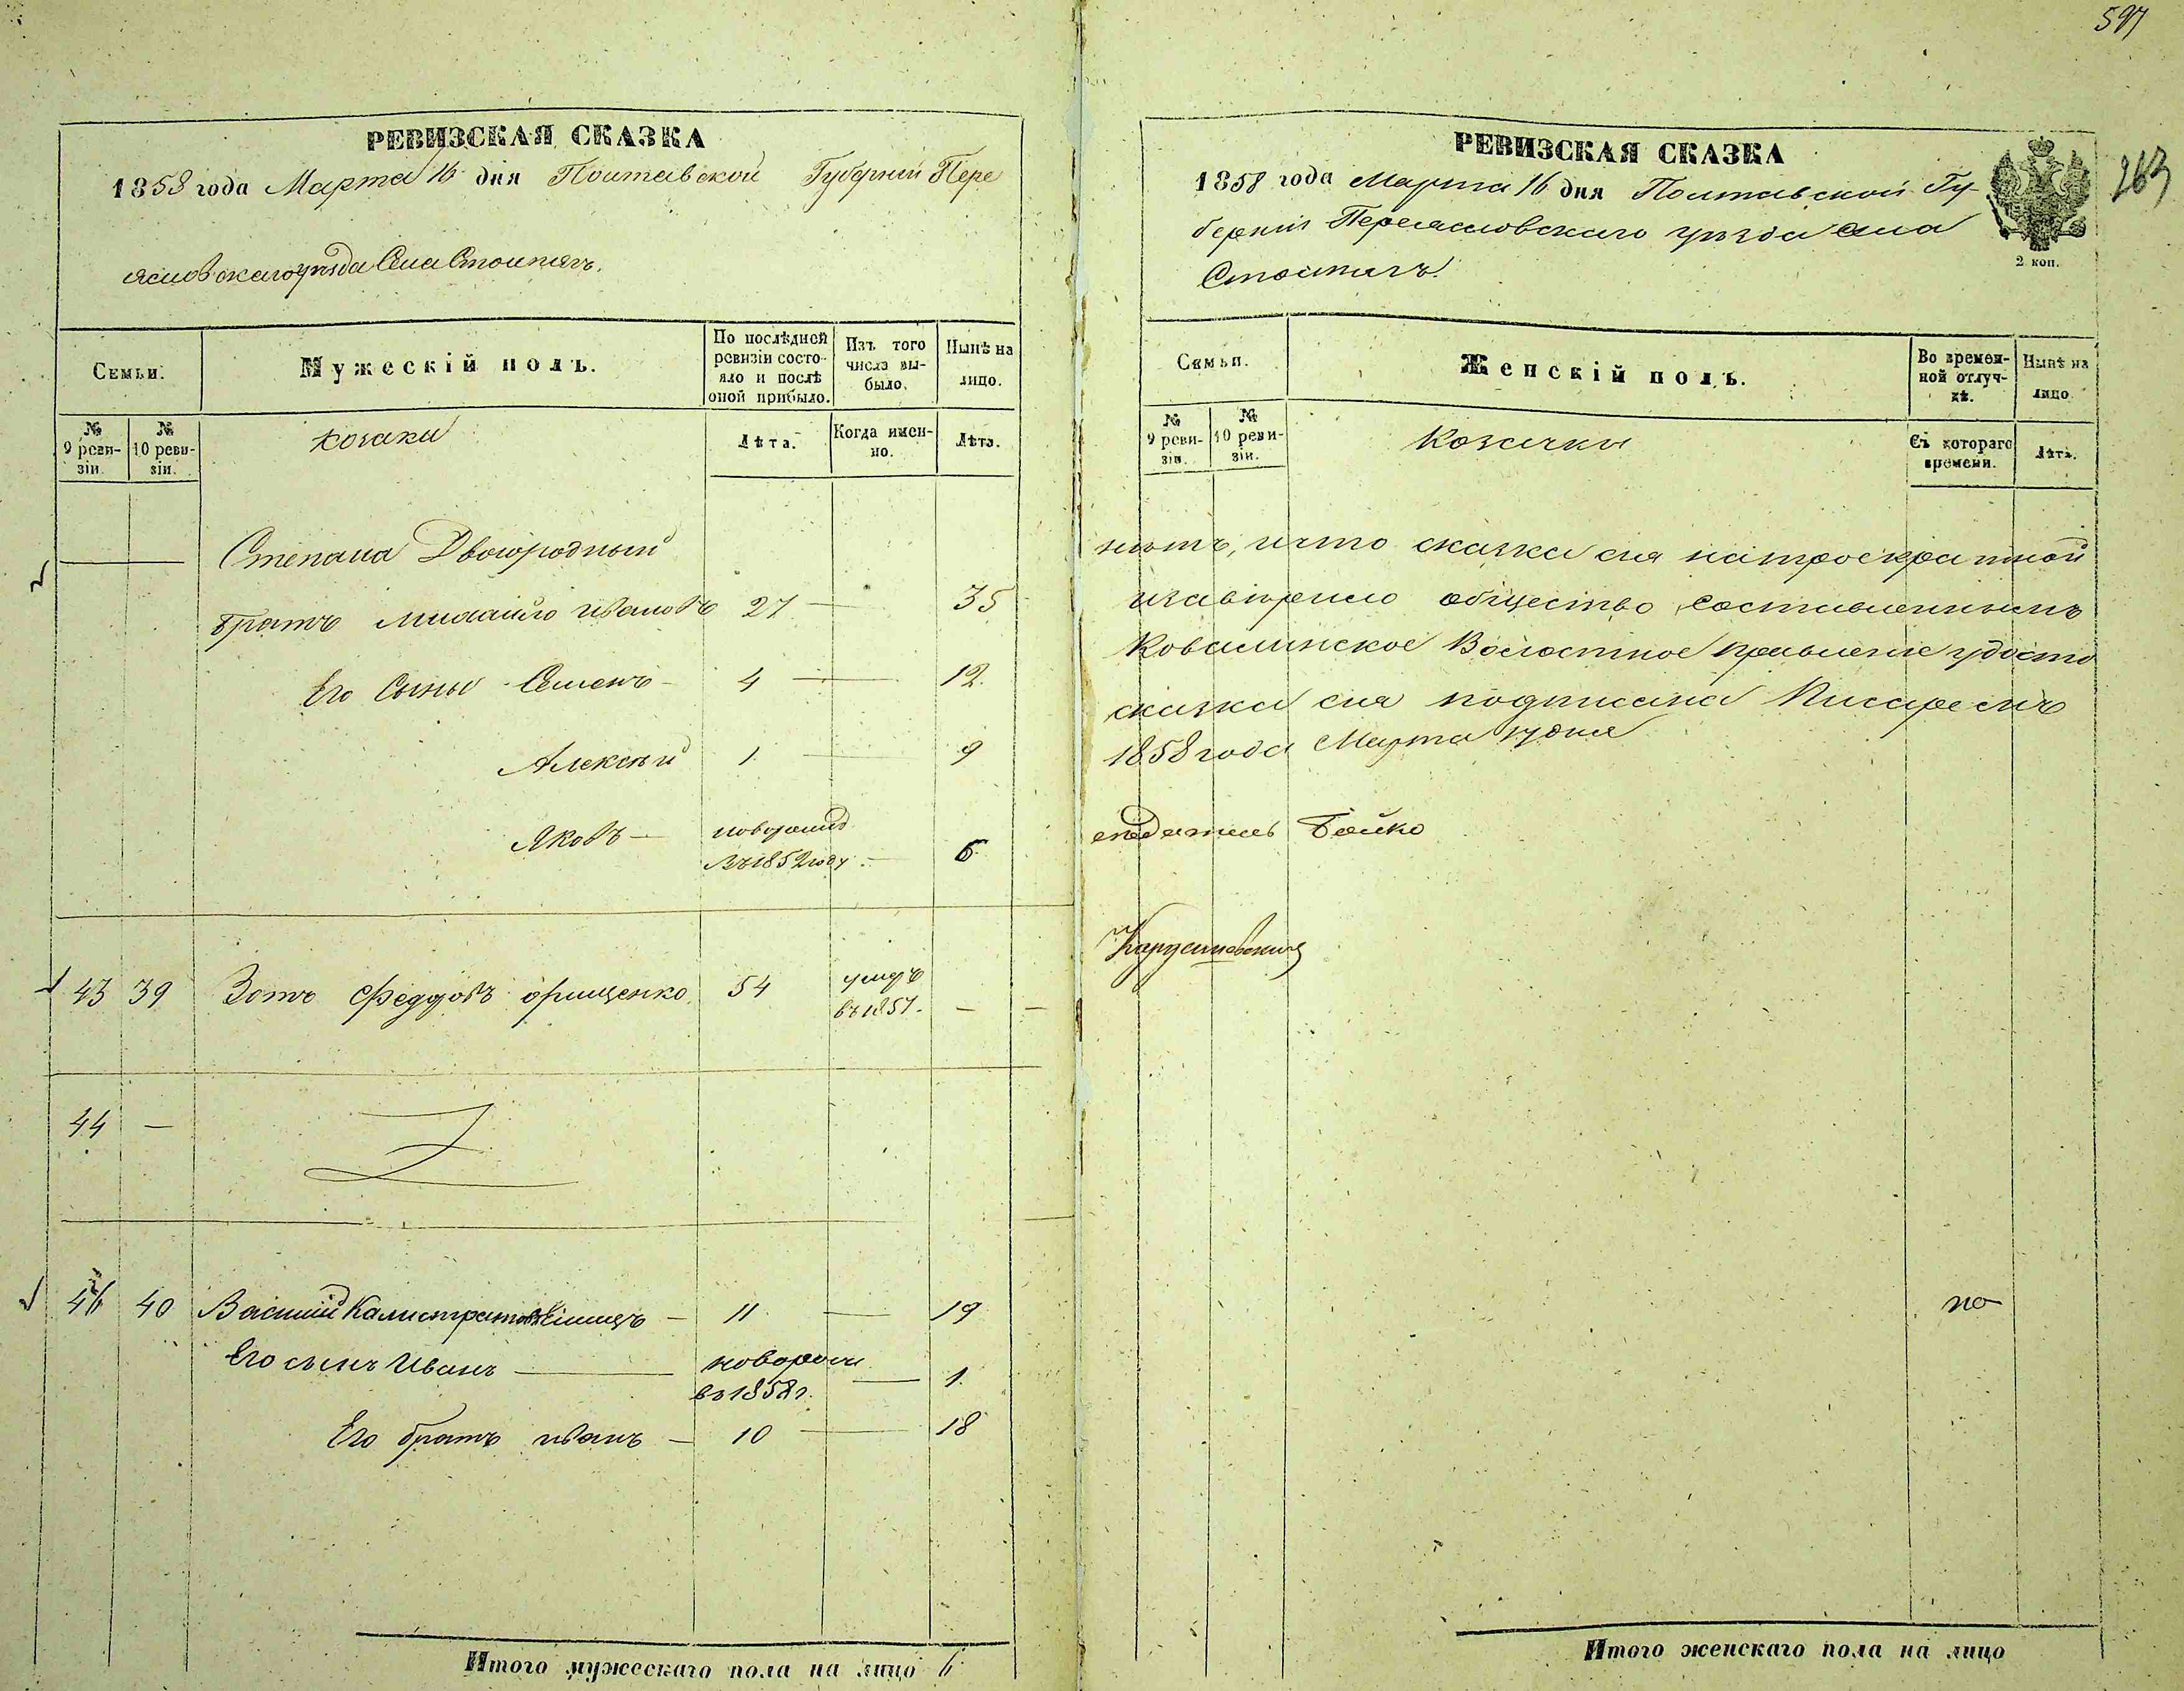 597
РЕВИЗСКАЯ СКАЗКА
1858 года Марта 16 дня Полтавской Губерний Пере
яславскаго уѣзда Села Стовпягъ.
Семьи.
Мужескій полъ.
По послѣдней ревизіи состояло и послѣ оной прибыло.
Изъ того числа выбыло.
Нынѣ на лицо.
№ 9 ревизіи.
№ 10 ревизіи.
козаки
Лѣта.
Когда именно.
Лѣта.
Степана Двоюродный
братъ Михайло Ивановъ 27 — 35
Его Сыны Семенъ — 4 — 12.
Алексѣй 1 — 9
Яковъ — новорожд
въ 1852 году. — 6
43 39 Зотъ Федоровъ Орищенко 54 умръ
въ 1857. — —
44 —
46 40 Василий Калистратовъ — 11 — 19
Его сынъ Иванъ — новорож
въ 1858 г. — 1.
Его братъ Иванъ — 10 — 18
Итого мужескаго пола на лицо 6
РЕВИЗСКАЯ СКАЗКА
263
1858 года Марта 16 дня Полтавской Гу-
берніи Переяславскаго уѣзда Села
Стовпягъ.
2 коп.
Семьи.
Женскій полъ.
Во временной отлучкѣ.
Нынѣ на лицо.
№ 9 ревизіи.
№ 10 ревизіи.
Козачки
Съ котораго времени.
Лѣта.
нътъ, и что сказка сия
общество составленнымъ
Ковалинское Волостное правление удосто
сказка сия подписана Писаремъ
1858 года Марта дня
седатель Бойко
по
Итого женскаго пола на лицо